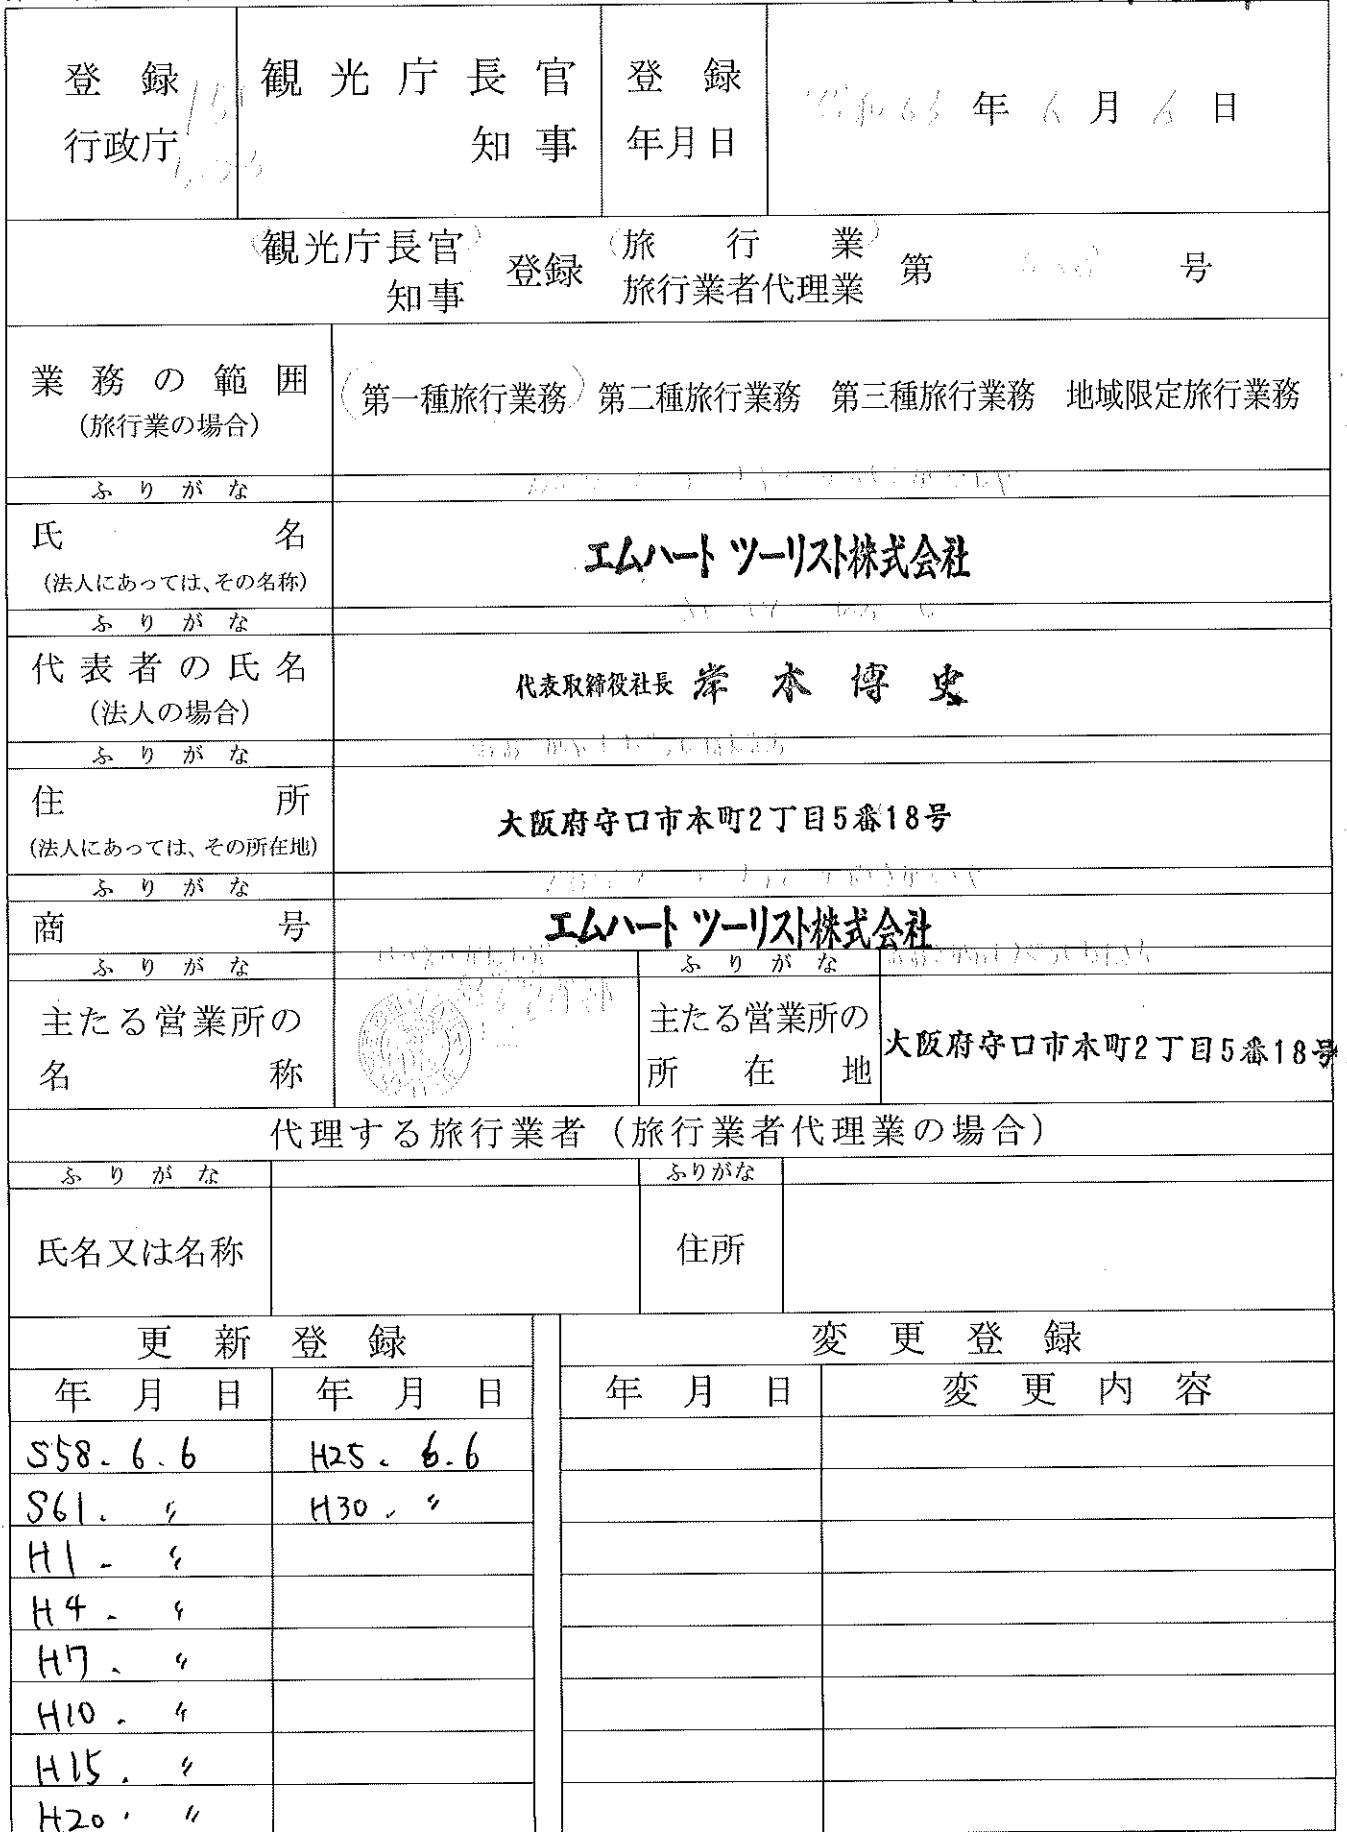 登録 観光庁長官 登録
行政庁 知事 年月日 年 6月 6日
観光庁長官 登録 旅行業 第 号
知事 旅行業者代理業
業務の範囲
(旅行業の場合)
第一種旅行業務 第二種旅行業務 第三種旅行業務 地域限定旅行業務
ふりがな
氏名
(法人にあっては、その名称)
エムハート ツーリスト株式会社
ふりがな
代表者の氏名
(法人の場合)
代表取締役社長 岸本博史
ふりがな
住所
(法人にあっては、その所在地)
大阪府守口市本町2丁目5番18号
ふりがな
商号 エムハート ツーリスト株式会社
ふりがな ふりがな
主たる営業所の
名称
主たる営業所の
所在地
大阪府守口市本町2丁目5番18号
代理する旅行業者(旅行業者代理業の場合)
ふりがな ふりがな
氏名又は名称 住所
更新登録 変更登録
年月日 年月日 年月日 変更内容
S58. 6. 6 H25. 6. 6
S61. 〃 H30. 〃
H1. 〃
H4. 〃
H7. 〃
H10. 〃
H15. 〃
H20. 〃